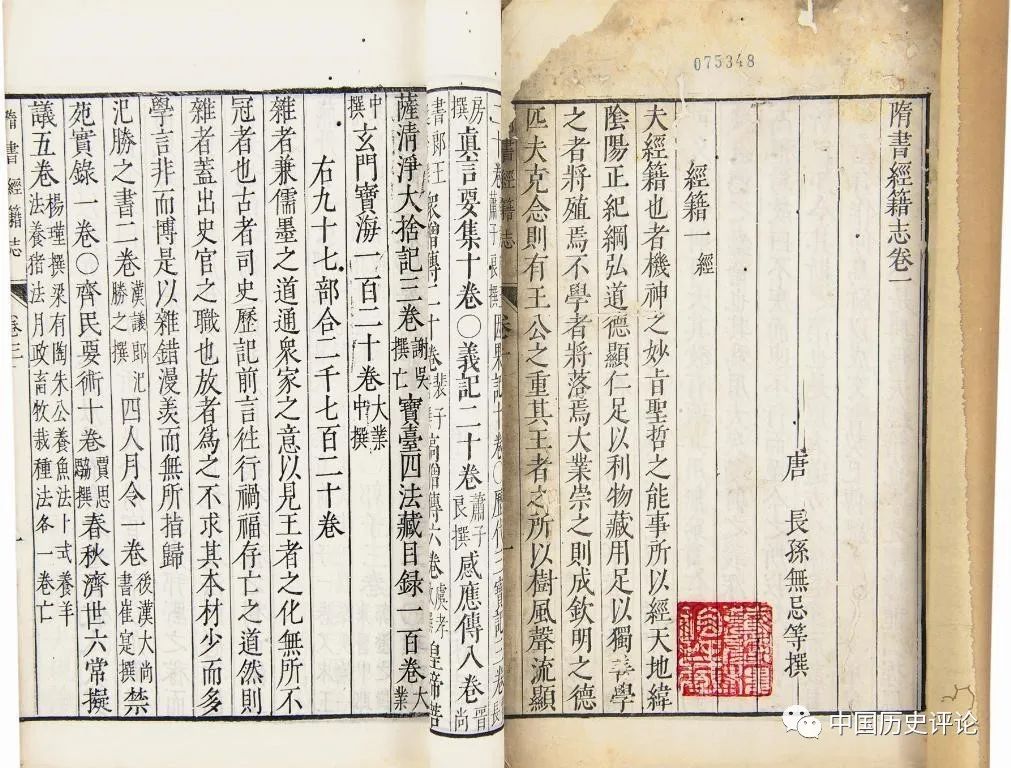 075348
隋書經籍志卷一
唐 長孫無忌等撰
經籍一 經
夫經籍也者機神之妙旨聖哲之能事所以經天地緯
陰陽正紀綱弘道德顯仁足以利物藏用足以獨善學
之者將殖焉不學者將落焉大業崇之則成欽明之德
匹夫克念則有王公之重其王者之所以樹風聲流顯
書經籍志
房撰眞言要集十卷〇義記二十卷蕭子良撰感應傳八卷晋尚
薩清淨大捨記三卷謝吳撰亡寶臺四法藏目錄一百卷大業
中撰玄門寶海一百二十卷大業中撰
右九十七部合二千七百二十卷
雜者兼儒墨之道通衆家之意以見王者之化無所不
冠者也古者司史歷記前言徃行禍福存亡之道然則
雜者蓋出史官之職也放者為之不求其本材少而多
學言非而博是以雜錯漫羨而無所指歸
氾勝之書二卷漢議郎氾勝之撰四人月令一卷後漢大尚書崔寔撰禁
苑實錄一卷〇齊民要術十卷賈思勰撰春秋濟世六常擬
議五卷楊瑾撰梁有陶朱公養魚法卜式養羊法養猪法月政畜牧栽種法各一卷亡
隋書經籍志 卷三
中国历史评论